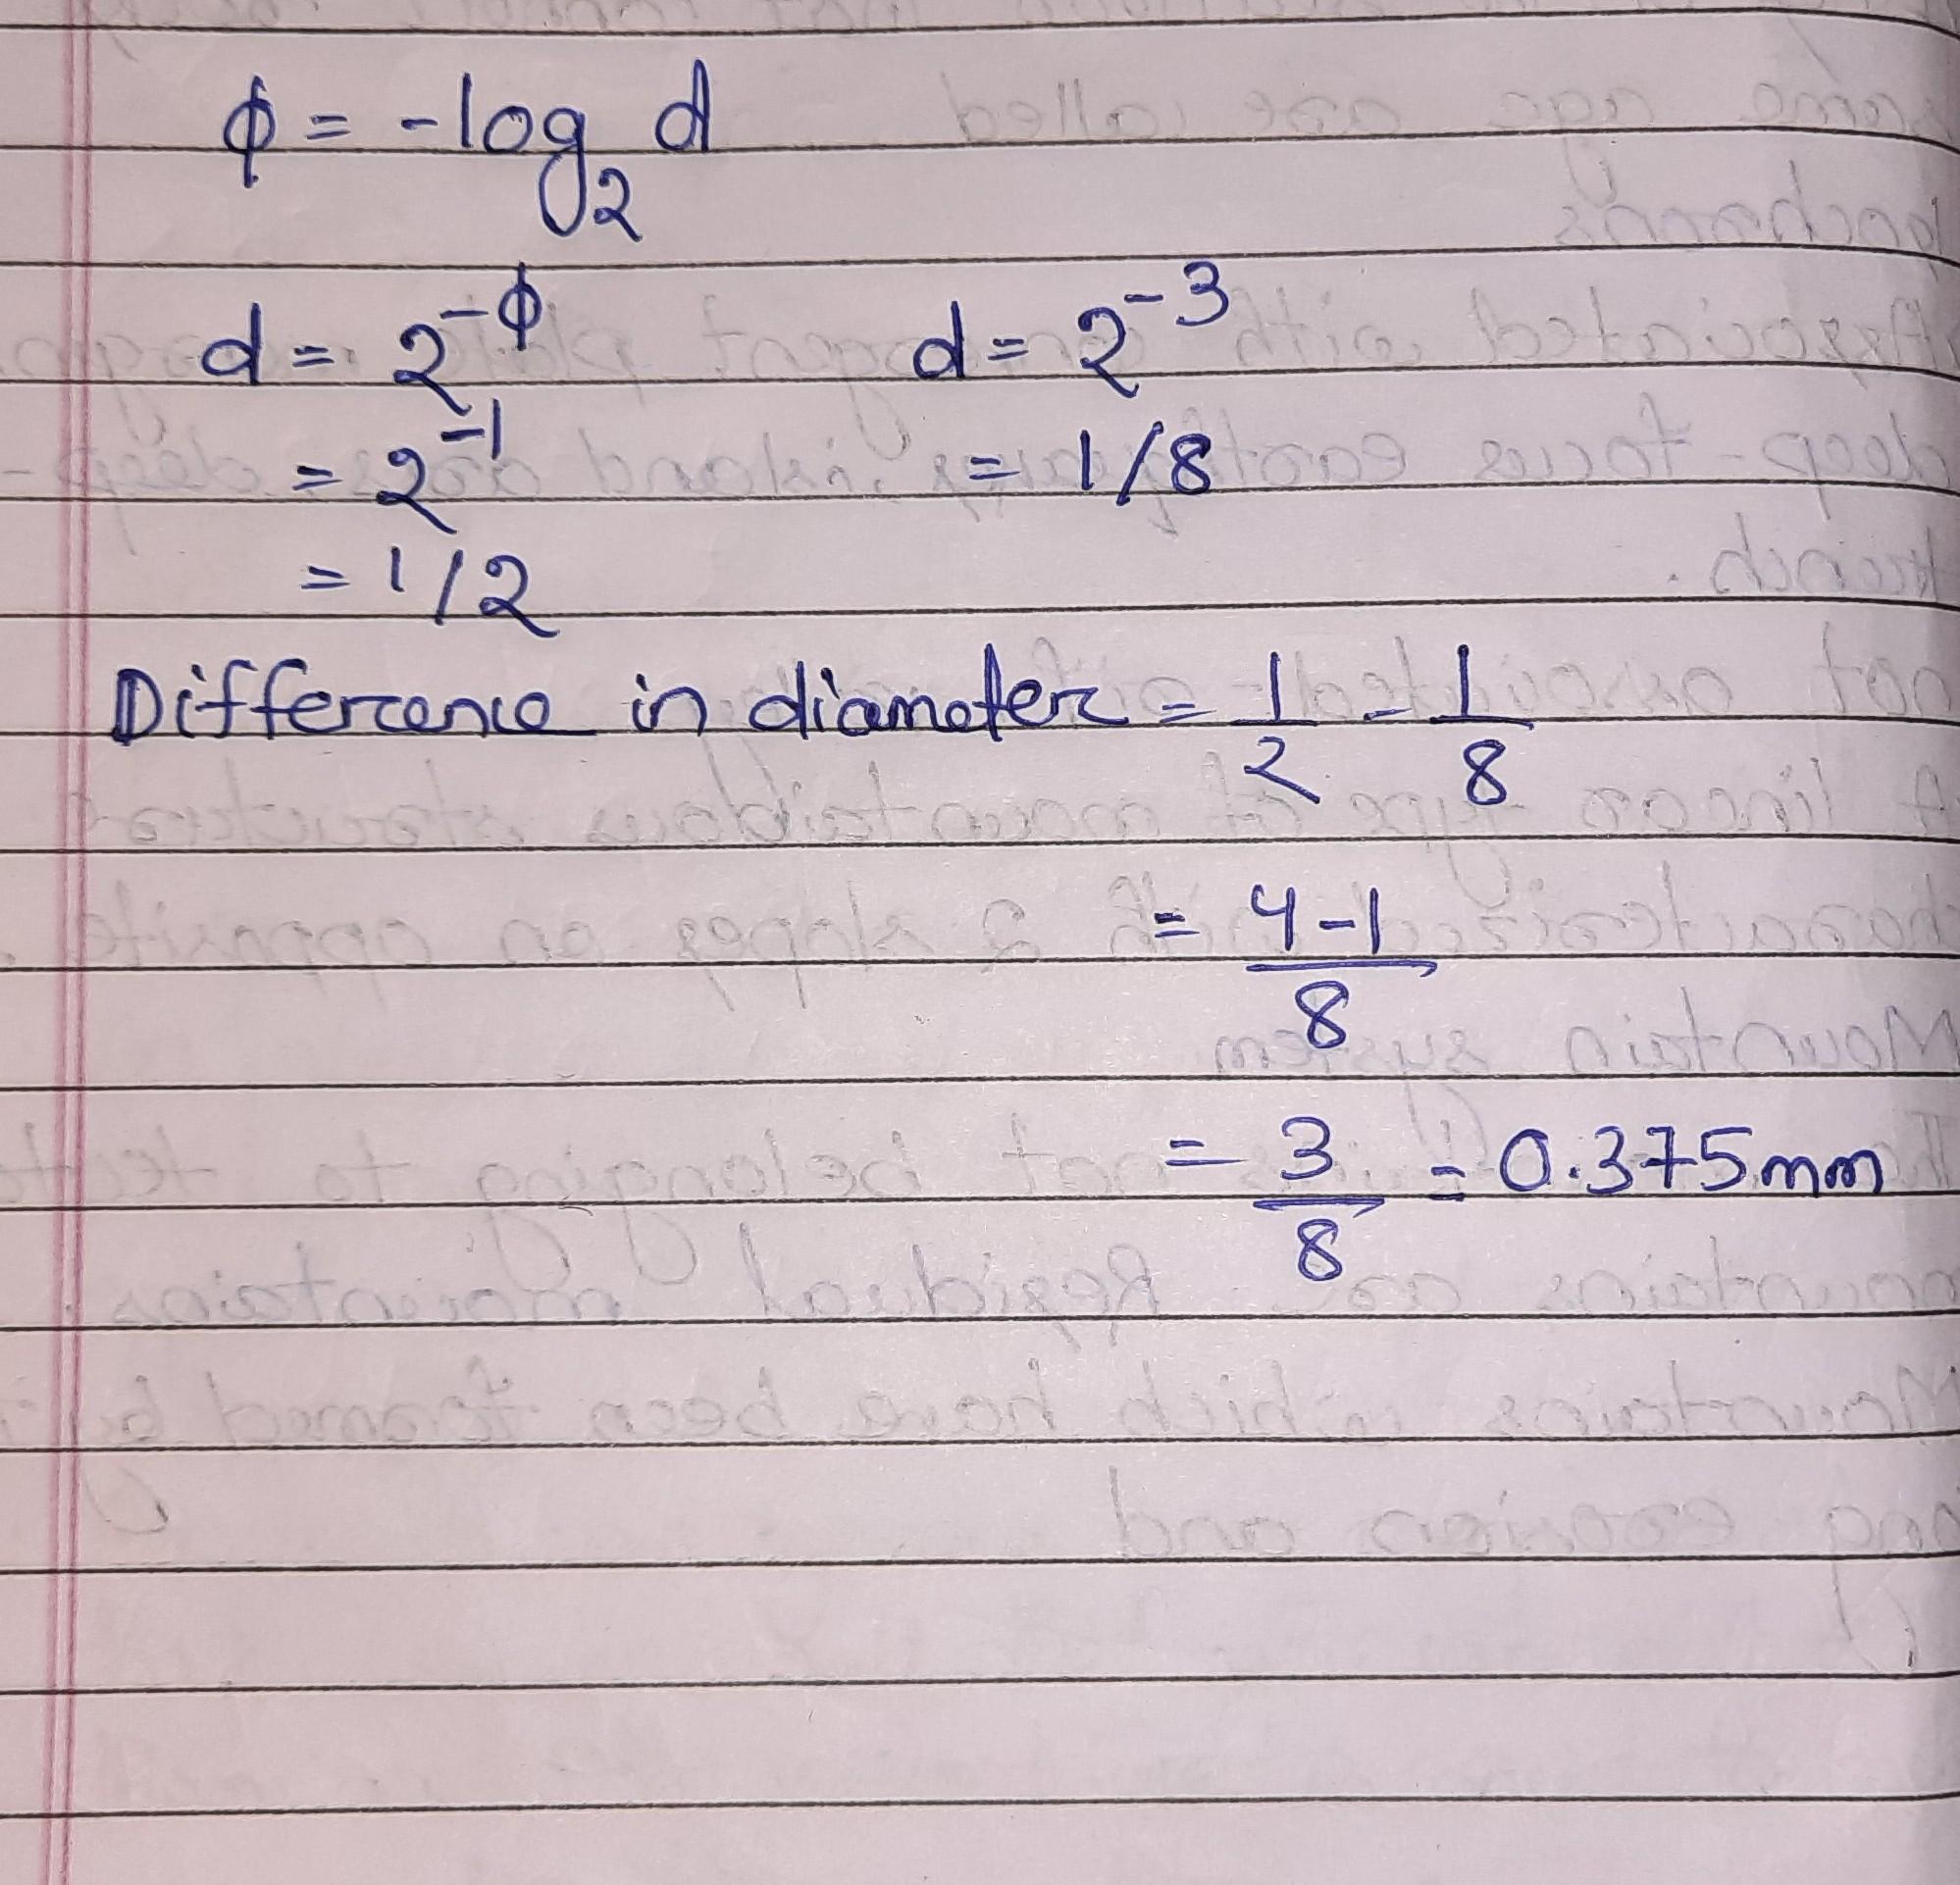 ϕ = -log₂ d
d = 2^-ϕ d = 2^-3
= 2^-1 = 1/8
= 1/2
Difference in diameter = 1/2 - 1/8
= 4-1/8
= 3/8 = 0.375mm